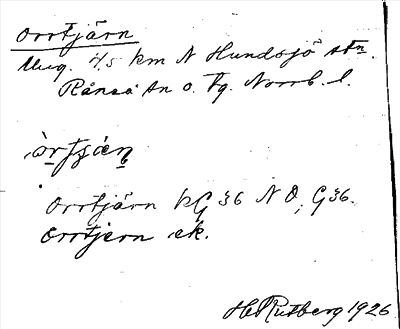 Orrtjärn
Ung. 4,5 km N Hundsjö stn.
Råneå sn o. tg. Norrb. l.
òrtjǽn
Orrtjärn kG 36 N O, G36.
Orrtjern ek.
H. Rutberg 1926